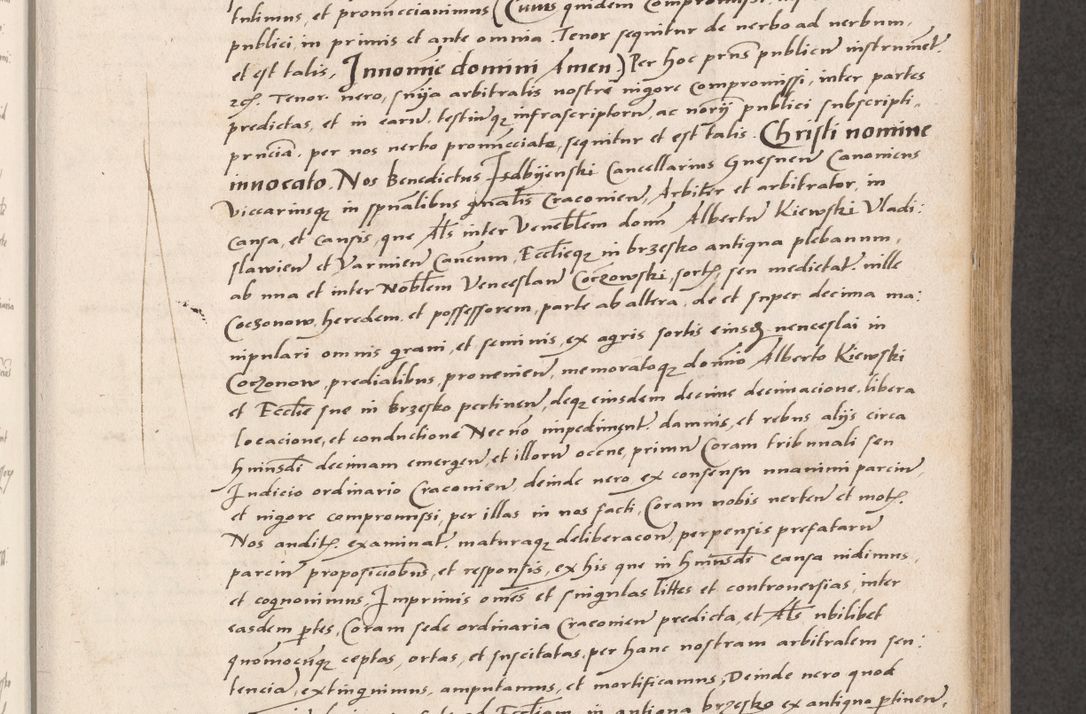 tulimus, et pronuncciavimus (Cuius quidem Compromissi
publici, in primis et ante omnia. Tenor sequitur de verbo ad verbum,
et est talis, Innomie domini Amen) Per hoc prns publicu instrumet.
Tenor. vero, sniia arbitralis nostre vigore compromissi, inter partes
predictas, et in earu. testiuqz infrascriptoru, ac norij publici subscripti,,
prncia. per nos verbo pronuncciata, sequitur et est talis. Christi nomine
invocato. Nos Benedictus Isdbijenski Cancellarius Gnesnen Canonicus
Viccariusqz in spualibus gnalis Craconien, Arbiter et arbitrator, in
Causa, et Causis, que Als inter Veneblem domn Albertu Kiewski Vladi:
slavien et Varmien Cancum, Ecclieqz in brzesko antiqua plebanum,
ab una et inter Noblem Venceslau Coczowski, sortis, seu medietat. ville
Coczonow, heredem, et possessorem, parte ab altera, de et super decima ma:
nipulari omnis grani, et seminis, ex agris sortis eiusdz venceslai in
Coczonow, predialibus, provenien, memoratoqz domino Alberto Kiewski
et Ecclie sue in brzesko pertinen, deqz eiusdem decime decimacione, libera
locacione, et conductione Necno impediment. damnis, et rebus alijs circa
huiusdi decimam emergen, et illoru occne, primu Coram tribunali seu
Iudicio ordinario Craconien, deinde vero ex consensu unanimi parciu,
et vigore compromissi, per illas in nos facti, Coram nobis verten et mot.
Nos audit. examinat. maturaqz deliberacon, perpensis prefataru
parciu propositiobus, et responsis, ex his que in huiusdi causa vidimus,
et cognovimus, Imprimis omes et singulas littes et controversias, inter
easdem ptes, Coram sede ordinaria Craconien predicta, et Als ubilibet
quomocuqz ceptas, ortas, et suscitatas, per hanc nostram arbitralem sen:
tencia, extinguimus, amputamus, et mortificamus, Deinde vero quod
ad Eccliam in antiqua brzesko ex antiquo ptinen,